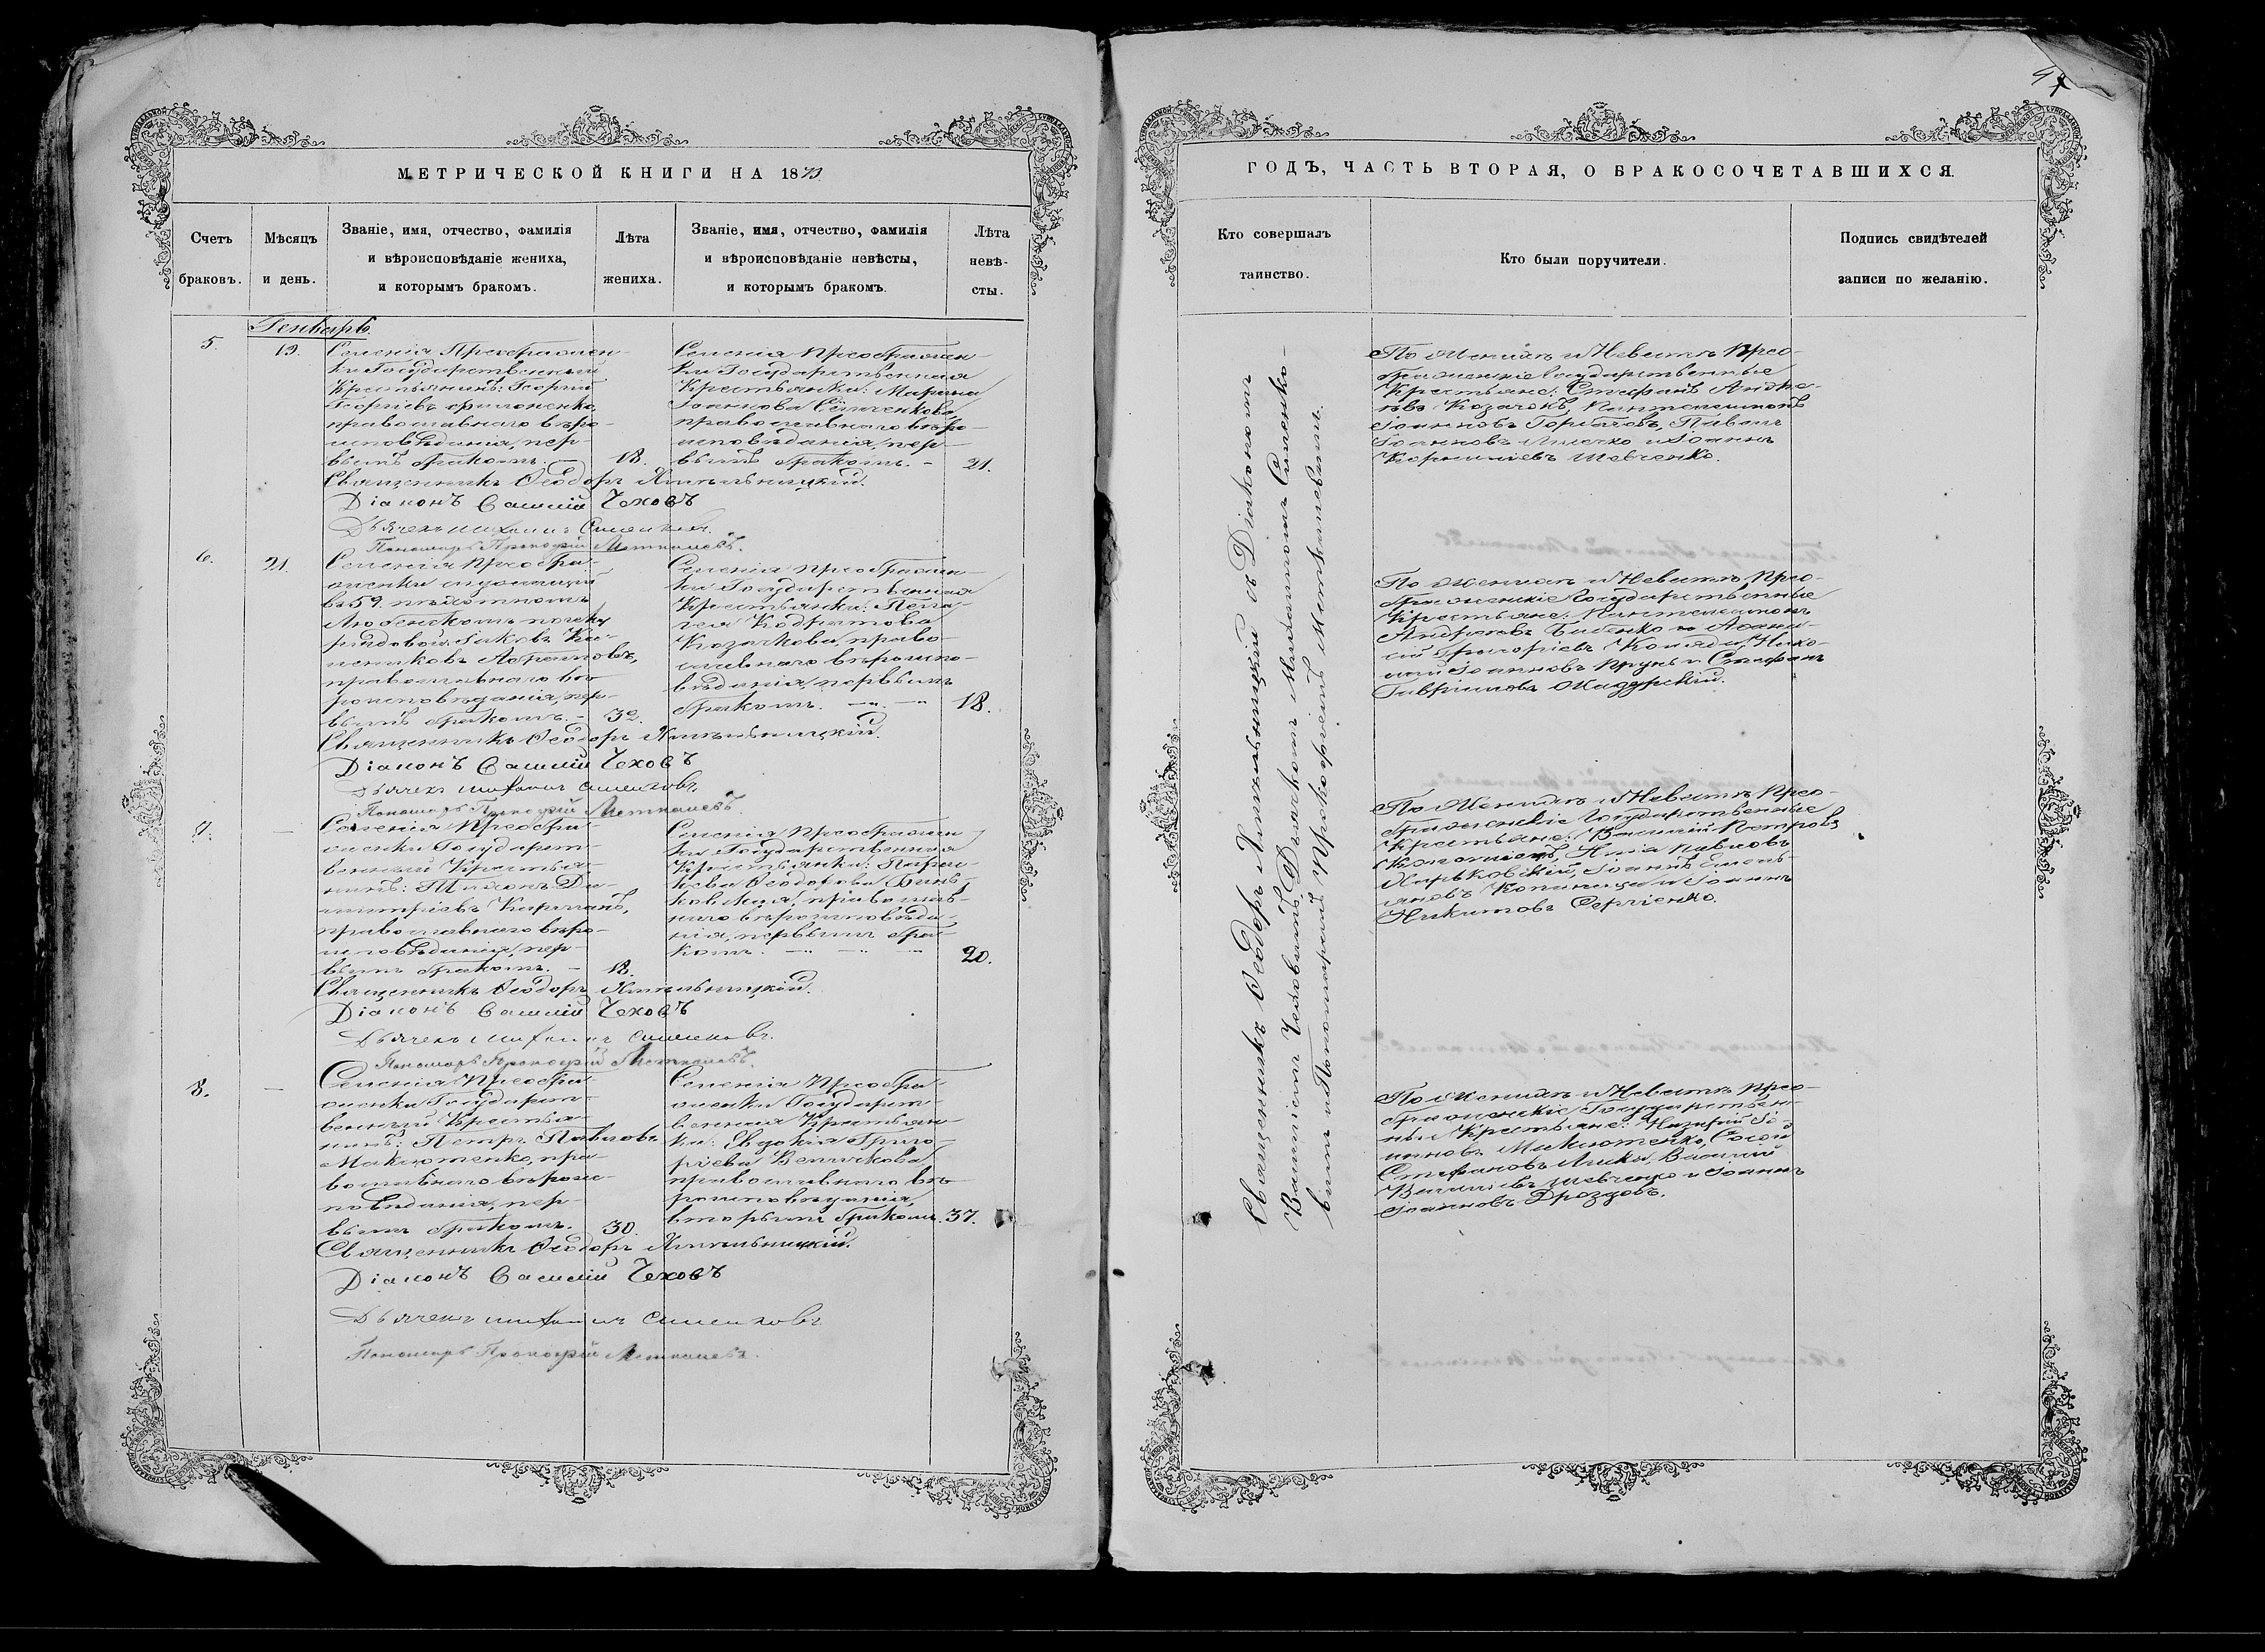 МЕТРИЧЕСКОЙ КНИГИ НА 1873
Счетъ браковъ.
Мѣсяцъ и день.
Званіе, имя, отчество, фамилія и вѣроисповѣданіе жениха, и которымъ бракомъ.
Лѣта жениха.
Званіе, имя, отчество, фамилія и вѣроисповѣданіе невѣсты, и которымъ бракомъ.
Лѣта невѣ-
сты.
Генварь.
5.
19.
Селенія Преображен-
ки Государственный
Крестьянинъ: Георгій
Георгіевъ Филоненко,
православнаго вѣро-
исповѣданія, пер-
вымъ бракомъ. –
18.
Селенія Преображен-
ки Государственная
Крестьянка: Марина
Іоаннова
православнаго вѣро-
исповѣданія, пер-
вымъ бракомъ. –
21.
Священникъ Ѳеодоръ Хмѣльницкій.
Діаконъ Василій Чеховъ
Дьячекъ Михаилъ Симеоновъ.
Пономарь Прокофій
6.
21.
Селенія Преобра-
женки служащій
въ 59. пѣхотномъ
Люблинскомъ полку
рядовой: Іаковъ
Абрамовъ,
православнаго вѣ-
роисповѣданія, пер-
вымъ бракомъ. –
32.
Селенія Преображен-
ки Государственная
Крестьянка: Пела-
гея Кодратова
Козачкова, право-
славнаго вѣроиспо-
вѣданія, первымъ
бракомъ. –„–„
18.
Священникъ Ѳеодоръ Хмѣльницкій.
Діаконъ Василій Чеховъ
Дьячекъ Михаилъ Симеоновъ.
Пономарь Прокофій
7.
–
Селенія Преобра-
женки Государст-
венный Крестья-
нинъ: Ди-
митріевъ
православнаго вѣро-
исповѣданія, пер-
вымъ бракомъ. –
18.
Селенія Преображен-
ки Государственная
Крестьянка: Парас-
кева Ѳеодорова Бинь-
ковская, православ-
наго вѣроисповѣда-
нія, первымъ бра-
комъ. –„–„–
20.
Священникъ Ѳеодоръ Хмѣльницкій.
Діаконъ Василій Чеховъ
Дьячекъ Михаилъ Симеоновъ.
Пономарь Прокофій
8.
–
Селенія Преобра-
женки Государст-
венный Крестья-
нинъ: Петръ Павловъ
Миклотенко, пра-
вославнаго вѣроис-
повѣданія, пер-
вымъ бракомъ.
30.
Селенія Преобра-
женки Государст-
венная Крестьян-
ка: Евдокія Григо-
ріева Величкова,
православнаго вѣ-
роисповѣданія,
вторымъ бракомъ.
37.
Священникъ Ѳеодоръ Хмѣльницкій.
Діаконъ Василій Чеховъ
Дьячекъ Михаилъ Симеоновъ
Пономарь Прокофій
ГОДЪ, ЧАСТЬ ВТОРАЯ, О БРАКОСОЧЕТАВШИХСЯ.
Кто совершалъ таинство.
Кто были поручители.
Подпись свидѣтелей записи по желанію.
Священникъ Ѳеодоръ Хмѣльницкій съ Діакономъ
Василіемъ Чеховымъ, Дьячкомъ Михаиломъ Симеоно-
вымъ и Пономаремъ Прокофіемъ
По Женихѣ и Невѣстѣ Прео-
браженскіе Государственные
Крестьяне: Стефанъ Андре-
евъ Козачокъ, Пантелеимонъ
Іоанновъ Горбачовъ, Павелъ
Іоанновъ и Іоаннъ
Корниліевъ Шевченко.
По Женихѣ и Невѣстѣ Прео-
браженскіе Государственные
Крестьяне: Пантелеимонъ
Андреевъ и Аѳана-
сій Григоріевъ Коляда, Нико-
лай Іоанновъ и Стефанъ
Гавриловъ
По Женихѣ и Невѣстѣ Прео-
браженскіе Государственные
Крестьяне: Василій Петровъ
Илія Павловъ
Харьковскій, Іоаннъ Емель-
яновъ и Іоаннъ
Никитовъ Сергіенко.
По Женихѣ и Невѣстѣ Прео-
браженскіе Государствен-
ные Крестьяне: Назарій Іо-
анновъ Миклотенко,
Стефановъ Василій
Василіевъ Шевченко и Іоаннъ
Іоанновъ Дроздовъ.